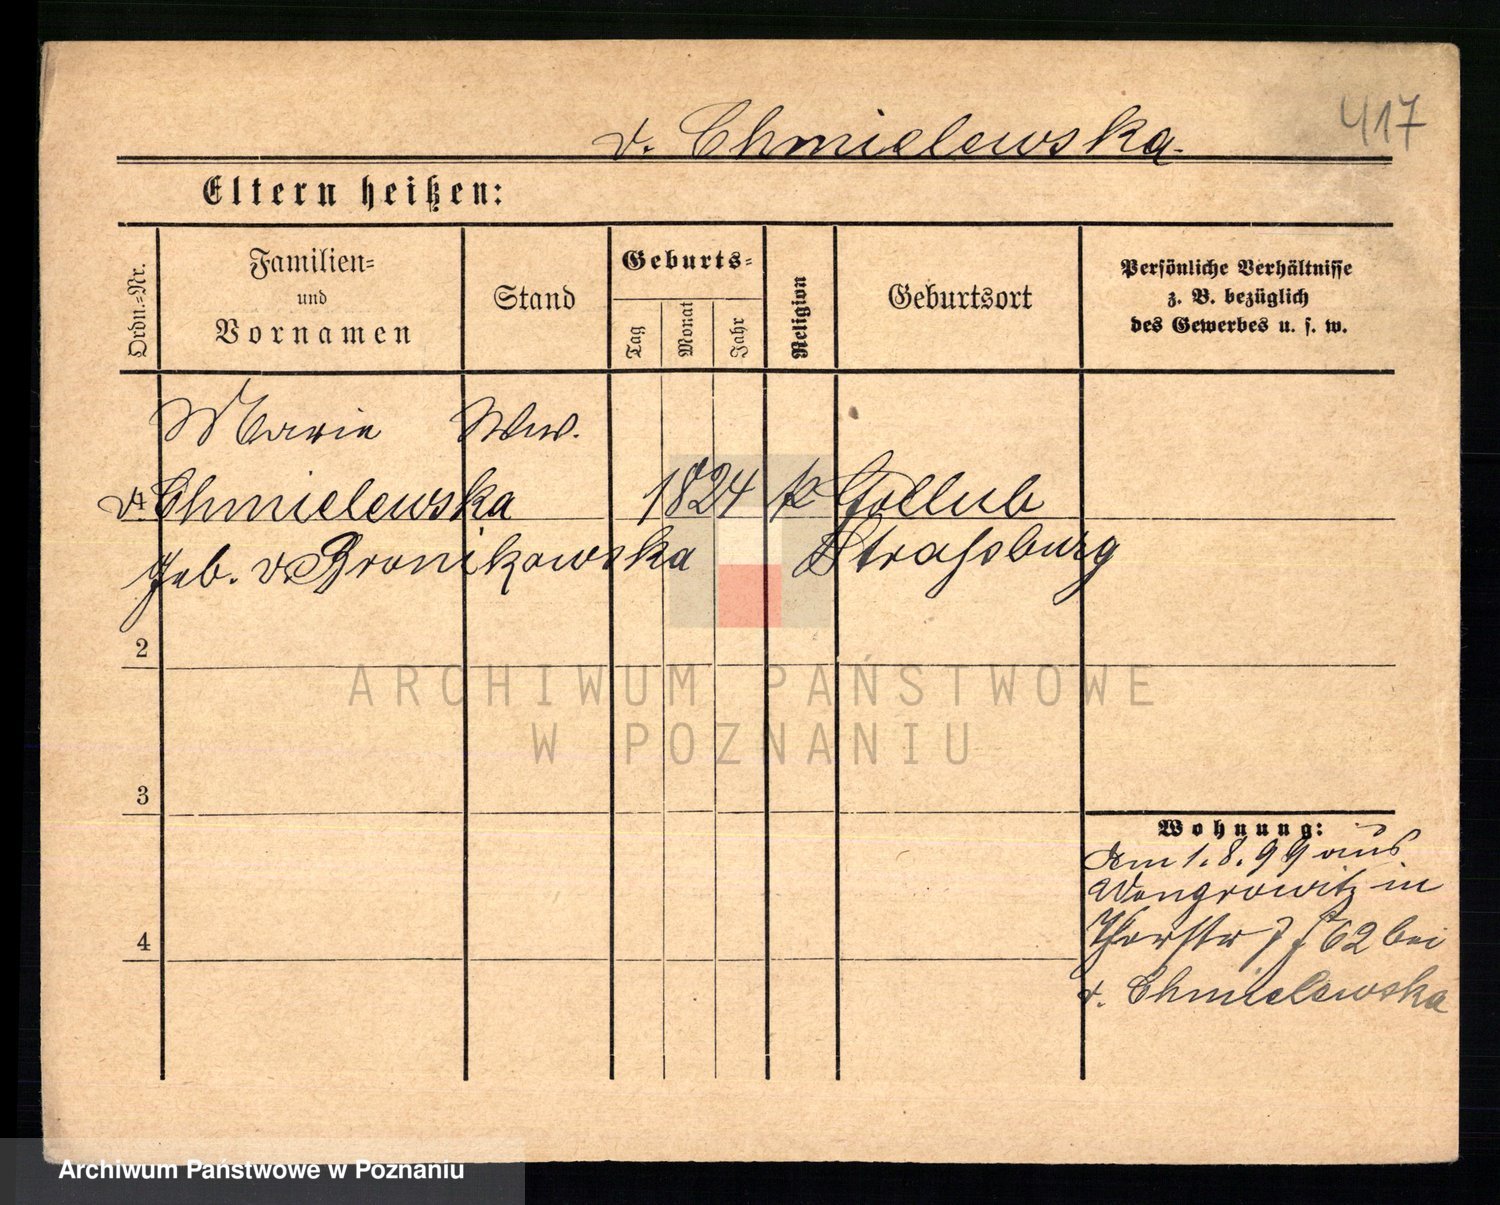 417
v. Chmielewska.
Eltern heißen:
Ordn.-Nr.
Familien-
und
Vornamen
Stand
Geburts-
Tag
Monat
Jahr
Religion
Geburtsort
Persönliche Verhältnisse
z. B. bezüglich
des Gewerbes u. s. w.
Marie Ww.
1 v. Chmielewska 1824 k Gollub
geb. v. Bronikowska Straßburg
2
3
4
Wohnung:
Am 1.8.99 aus
Wongrowitz in
62 bei
v. Chmielewska
ARCHIWUM PAŃSTWOWE
W POZNANIU
Archiwum Państwowe w Poznaniu